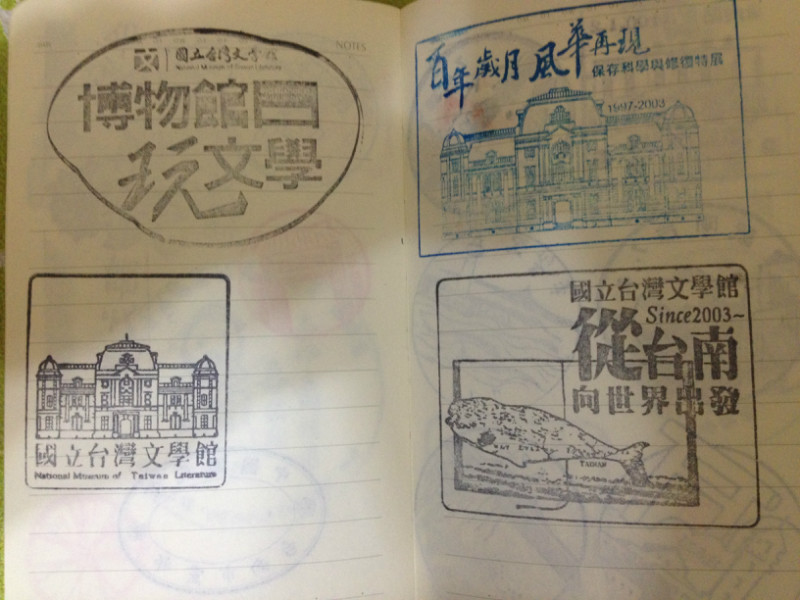 國立台灣文學館
National Museum of Taiwan Literature
NOTES
博物館
玩文學
國立台灣文學館
National Museum of Taiwan Literature
百年歲月風華再現
保存科學與修復特展
1997-2003
國立台灣文學館
Since2003~
從台南
向世界出發
TAINAN